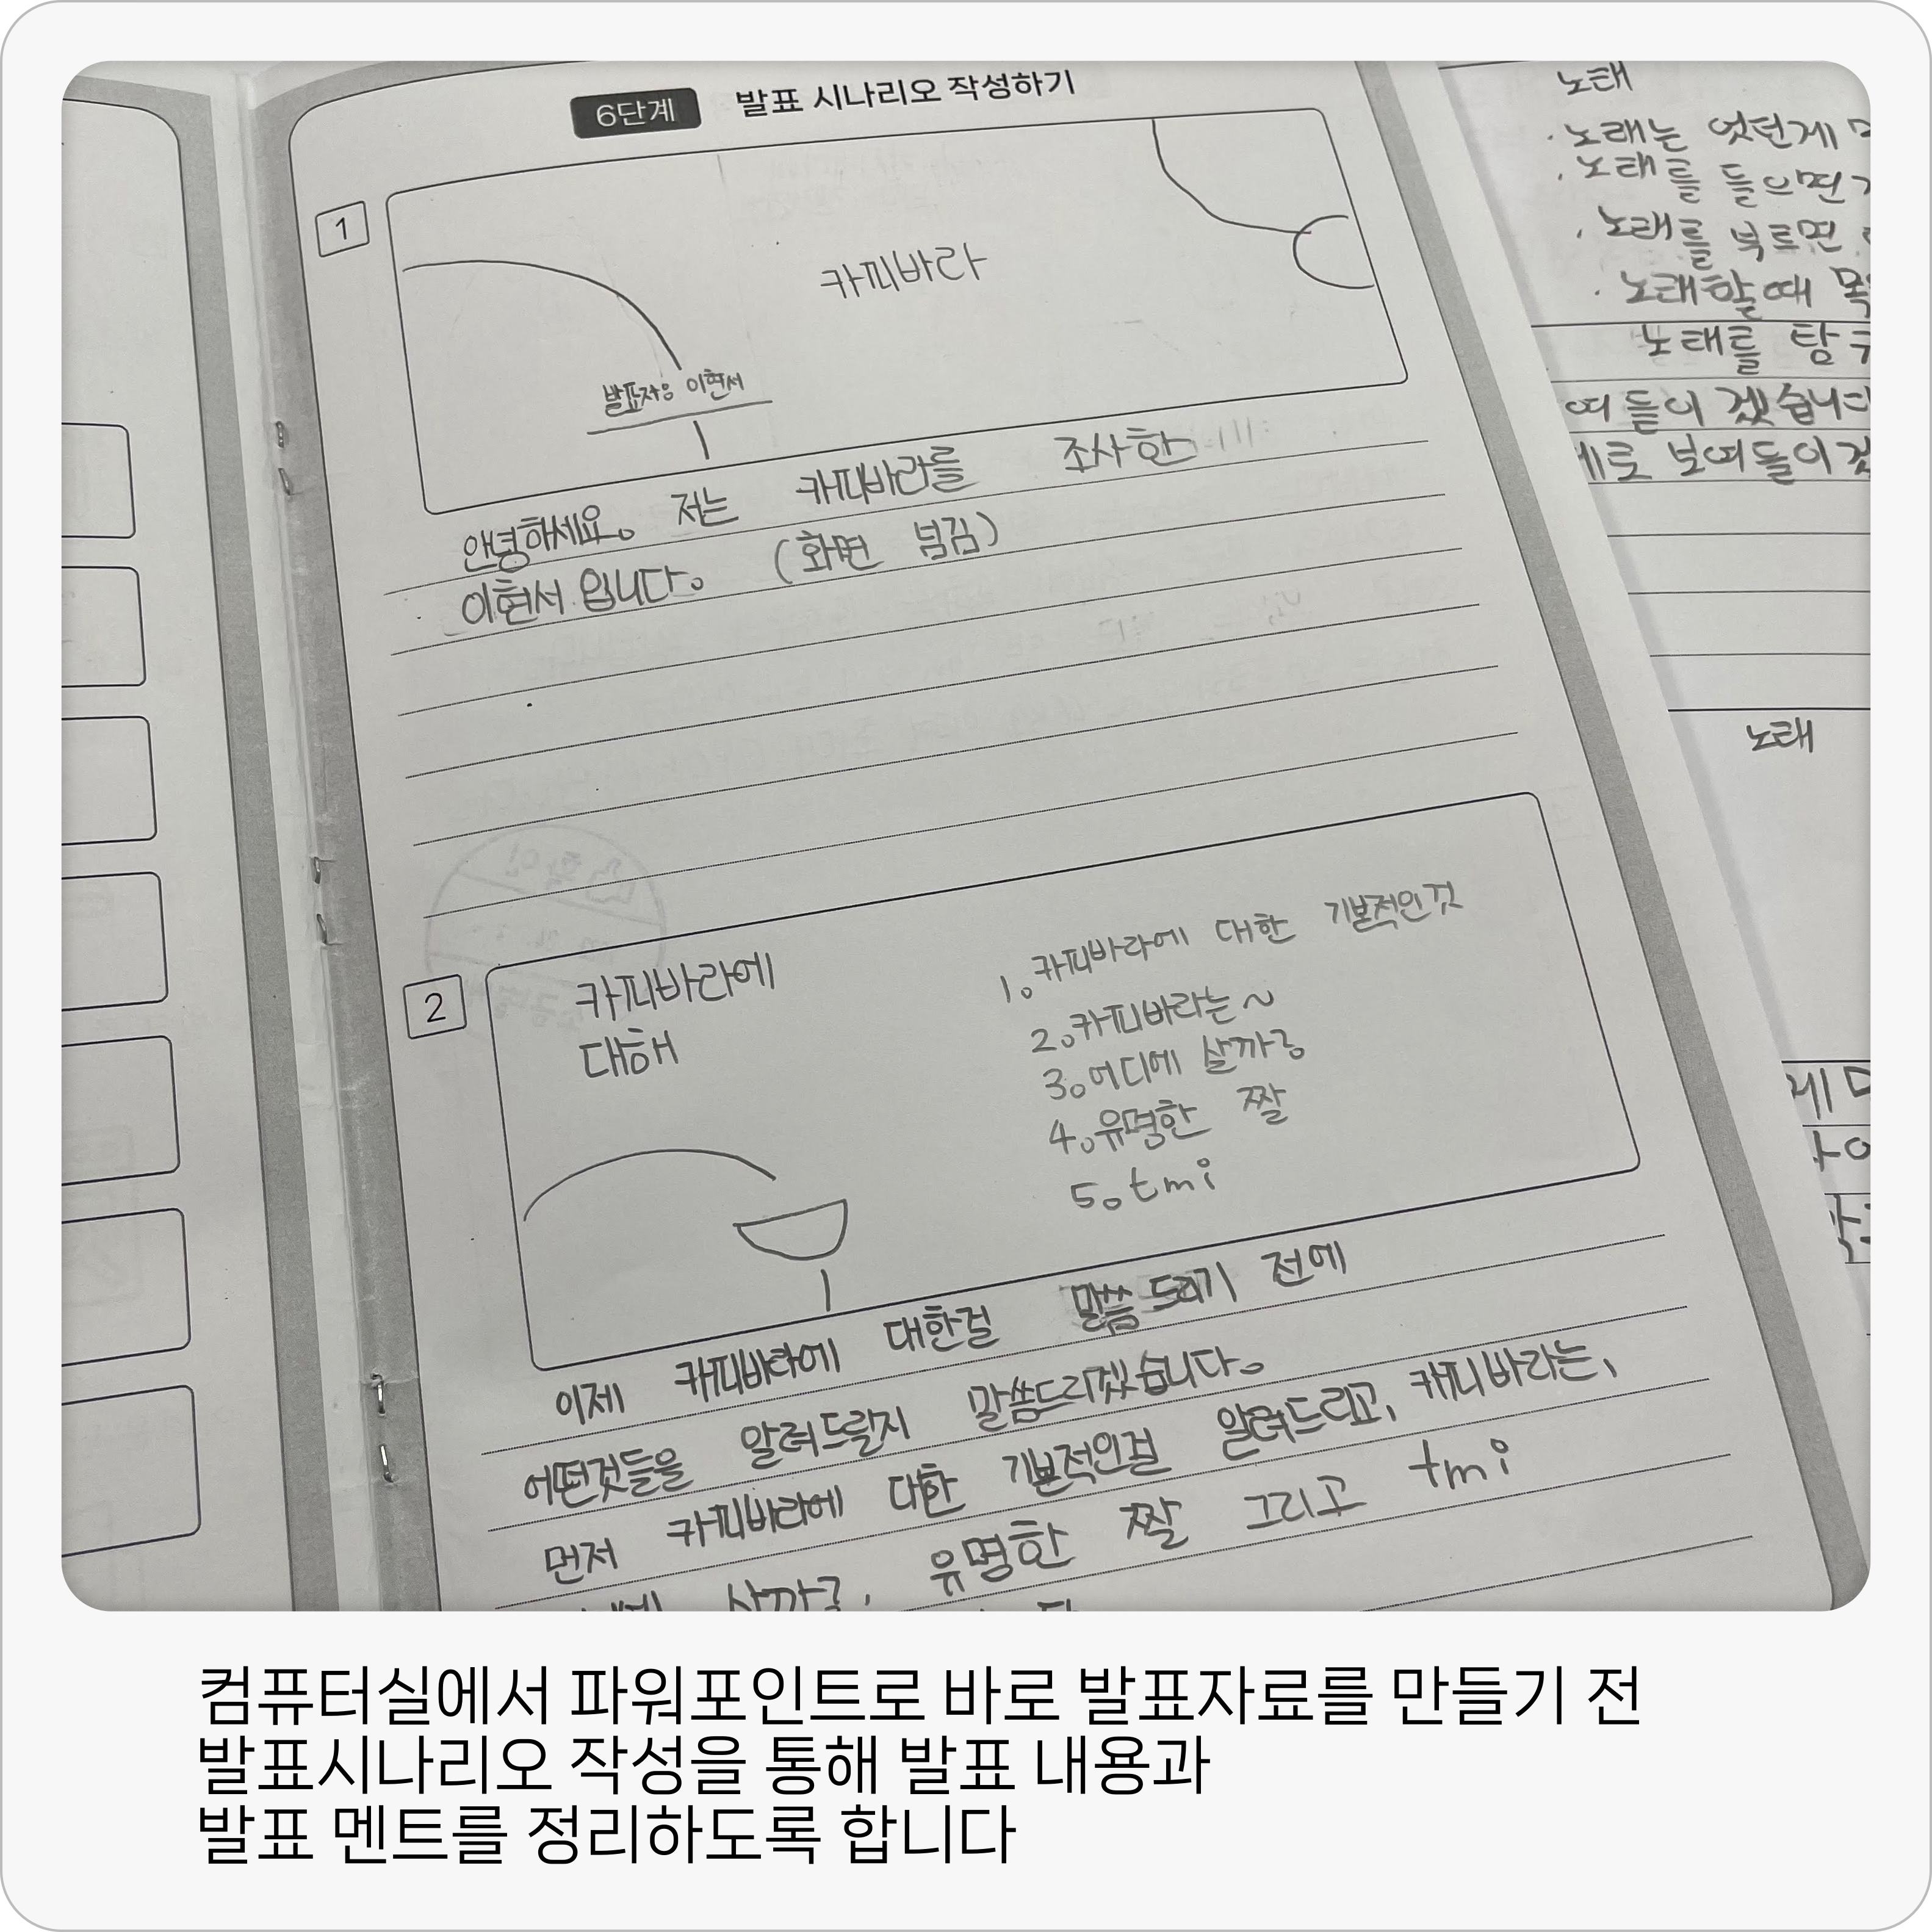 6단계 발표 시나리오 작성하기
1
카피바라
발표자: 이현서
안녕하세요. 저는 카피바라를 조사한
이현서 입니다. (화면 넘김)
2
카피바라에
대해
1. 카피바라에 대한 기본적인 것
2. 카피바라는~
3. 어디에 살까?
4. 유명한 짤
5. tmi
이제 카피바라에 대한걸 말씀 드리기 전에
어떤것들을 알려드릴지 말씀드리겠습니다.
먼저 카피바라에 대한 기본적인걸 알려드리고, 카피바라는,
살까?, 유명한 짤 그리고 tmi
노래
·노래는 었던게
·노래를 들으면
·노래를 부르면
·노래할때
노래를 탐
여들이겠습니
로 보여들이
노래
컴퓨터실에서 파워포인트로 바로 발표자료를 만들기 전
발표시나리오 작성을 통해 발표 내용과
발표 멘트를 정리하도록 합니다